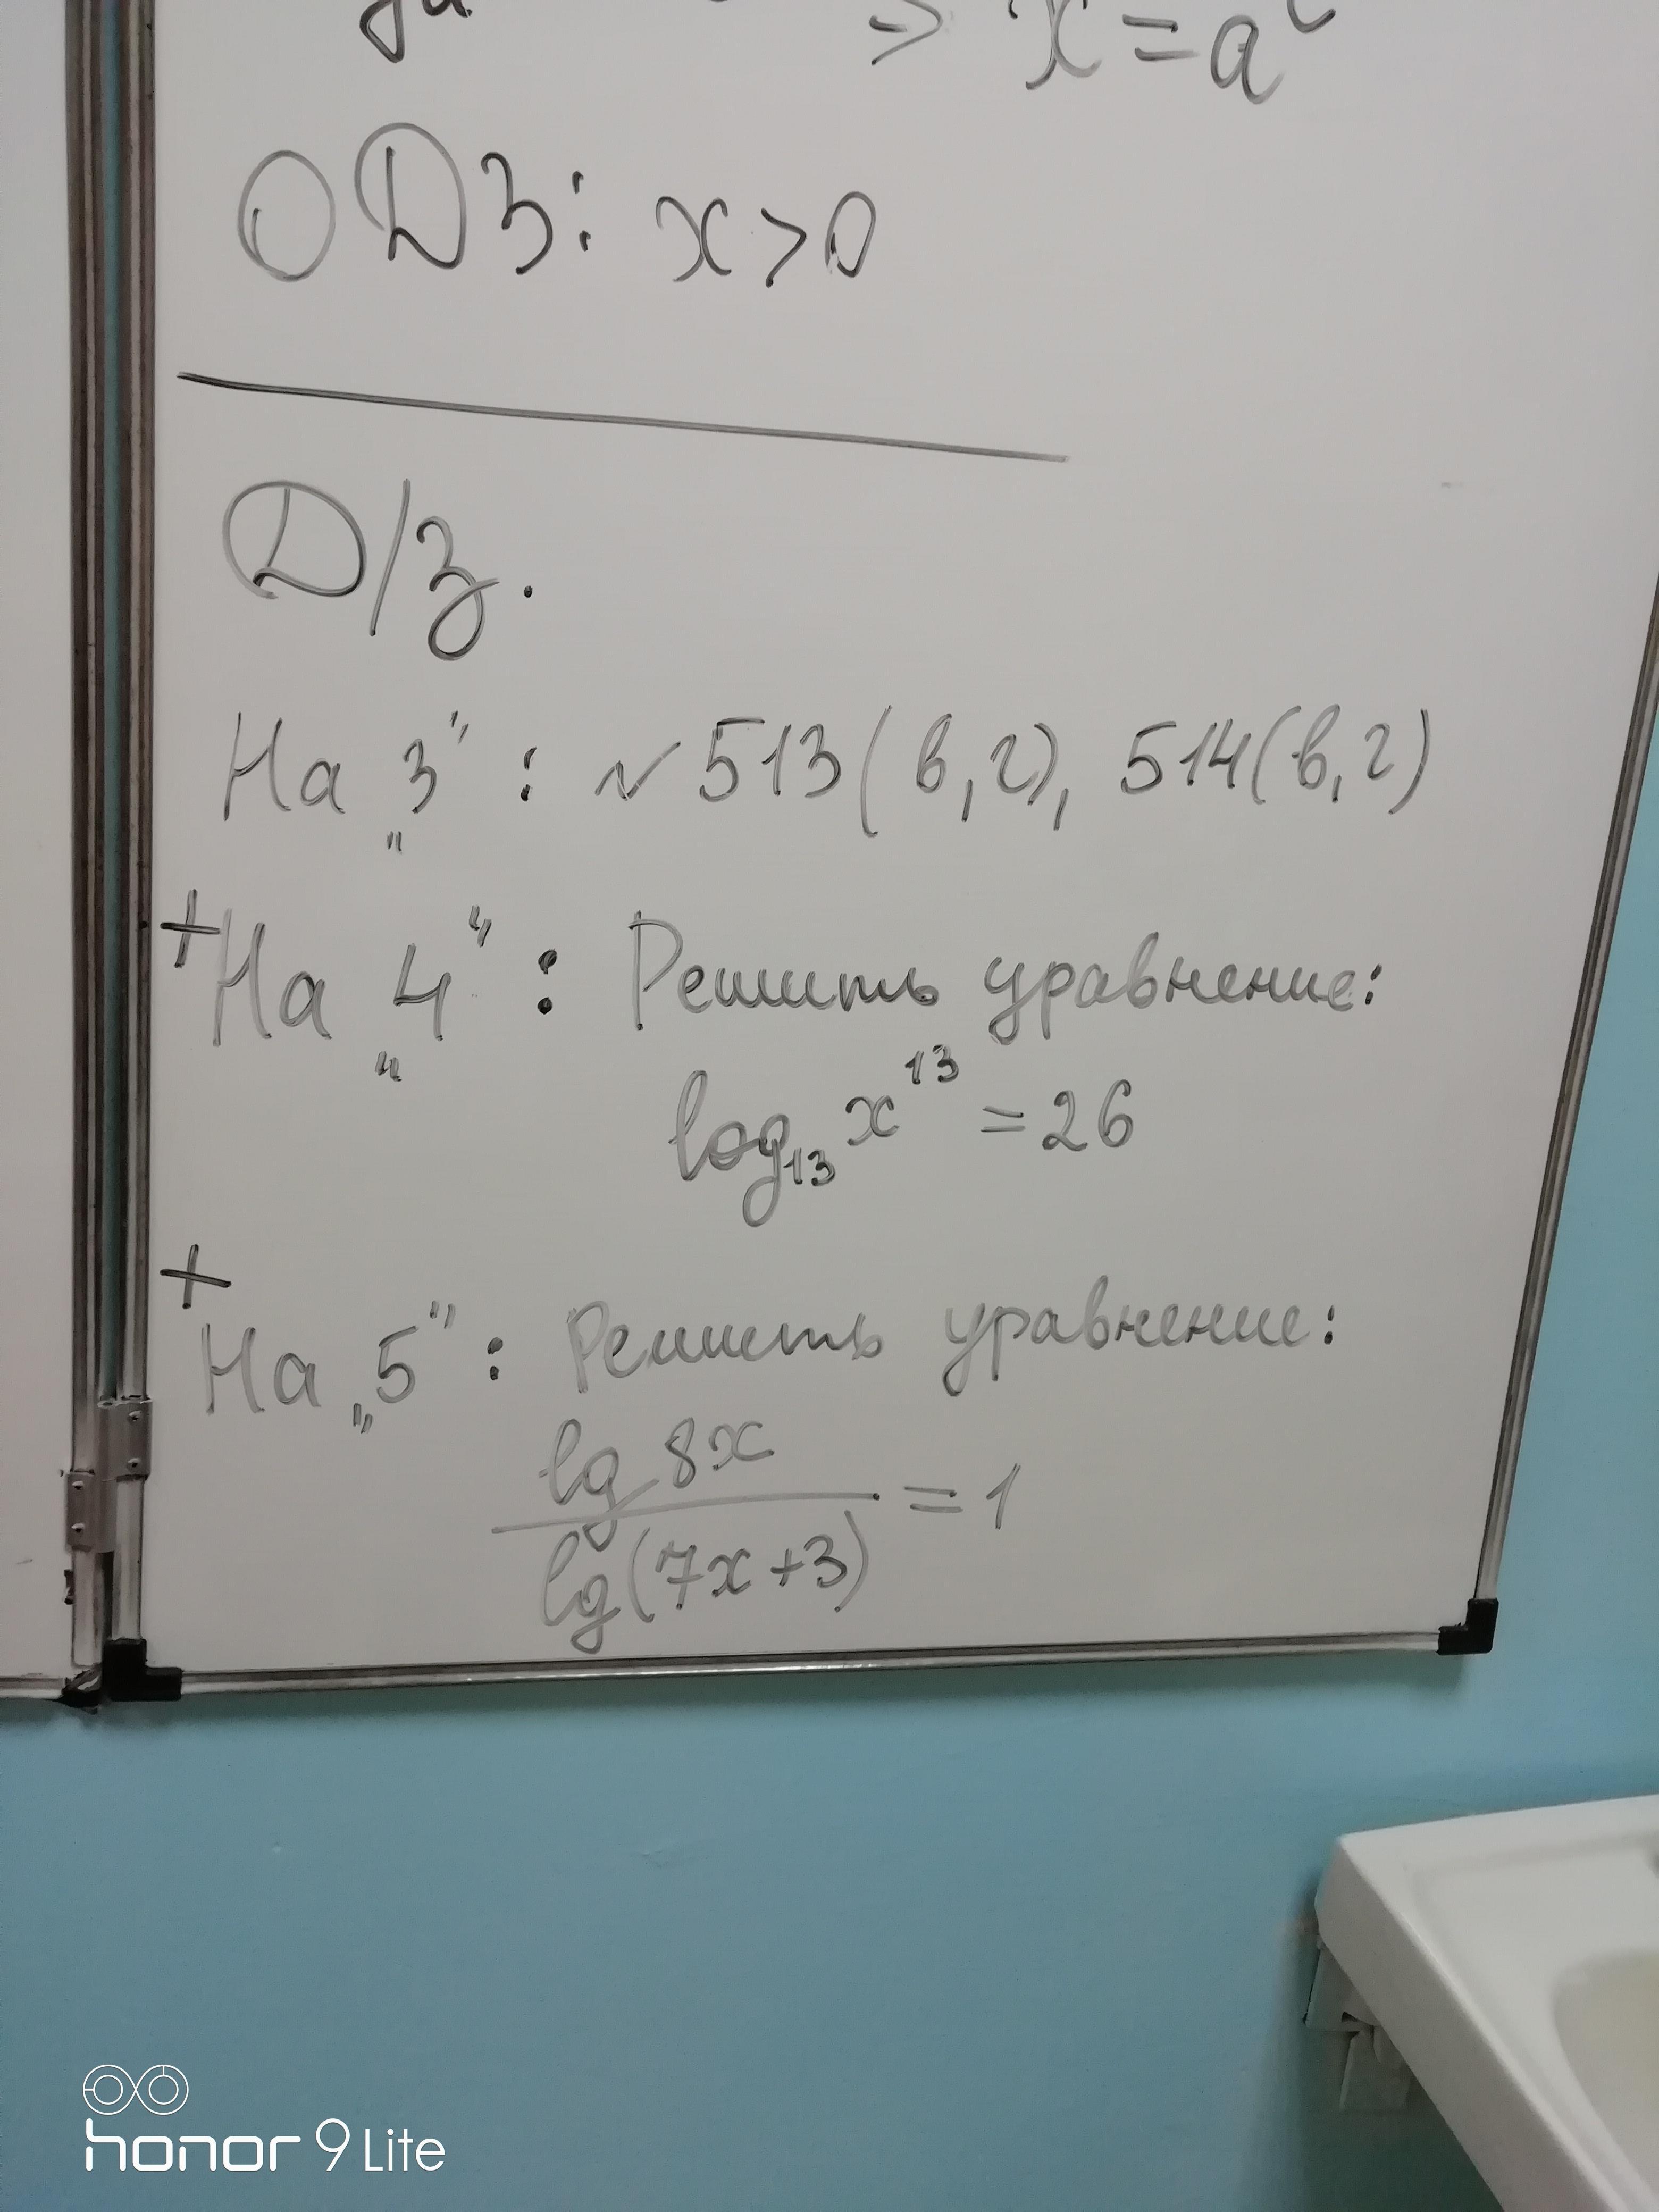 > x = a
ОДЗ: x>0
Д/з.
На „3": № 513(в,г), 514(в,г)
+На „4": Решить уравнение:
log₁₃ x¹³ = 26
+
На „5": Решить уравнение:
lg 8x
= 1
lg(7x+3)
honor 9 Lite